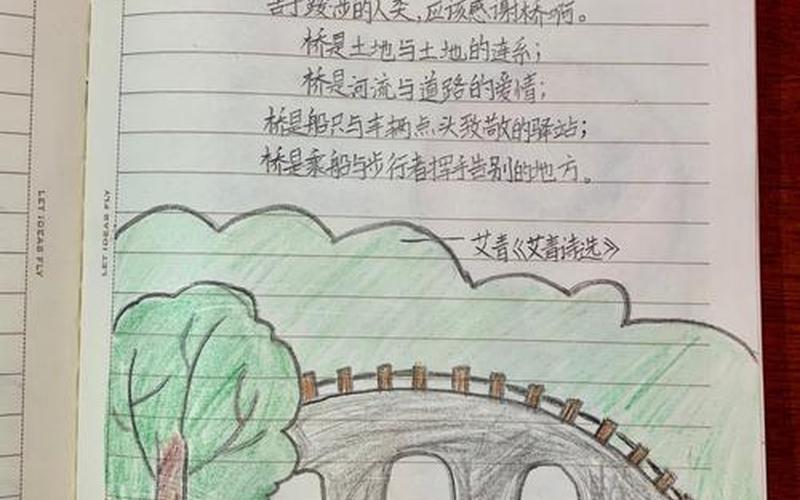 苦于跋涉的人类,应该感谢桥啊。
桥是土地与土地的连系;
桥是河流与道路的爱情;
桥是船只与车辆点头致敬的驿站;
桥是乘船与步行者挥手告别的地方。
——艾青《艾青诗选》
LET IDEAS FLY
LET IDEAS FLY